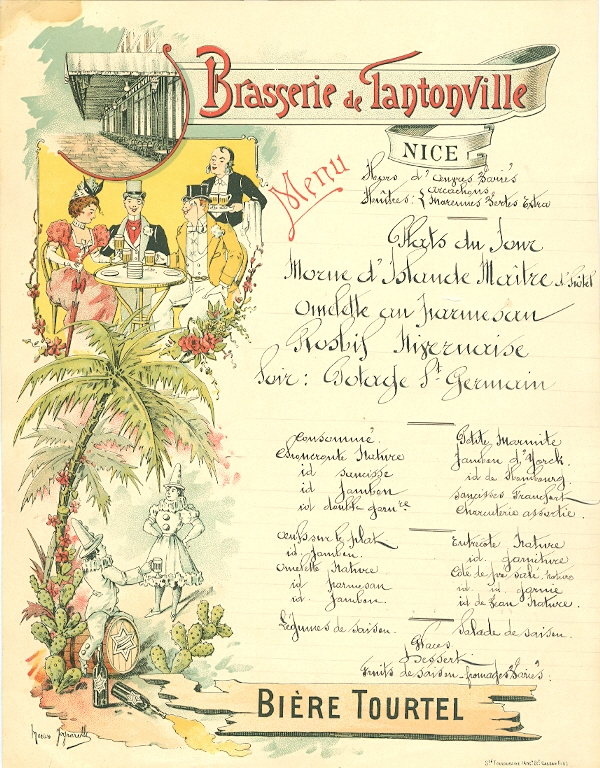 Brasserie de Tantonville
NICE
Menu
Hors d'œuvres Variés
Arcachons
Huîtres: { Marennes Vertes Extra
Plats du Jour
Morue d'Islande Maitre d'hôtel
Omelette au parmesan
Rosbif Nivernaise
Soir: Potage St Germain
Consommé.
Choucroute Nature
id saucisse
id jambon
id double garnre
Petite Marmite
Jambon d'Yorck.
id de Hambourg
Saucisses Francfort
Charcuterie assortie.
Œufs sur le plat
id. jambon.
Omelette Nature
id parmesan
id. jambon.
Entrecôte Nature
id. garniture
Côte de pré salé, nature
id. id. garnie
id de Veau Nature.
Légumes de saison.
Salade de saison.
Glaces
Dessert
Fruits de saison fromages Variés:
BIÈRE TOURTEL